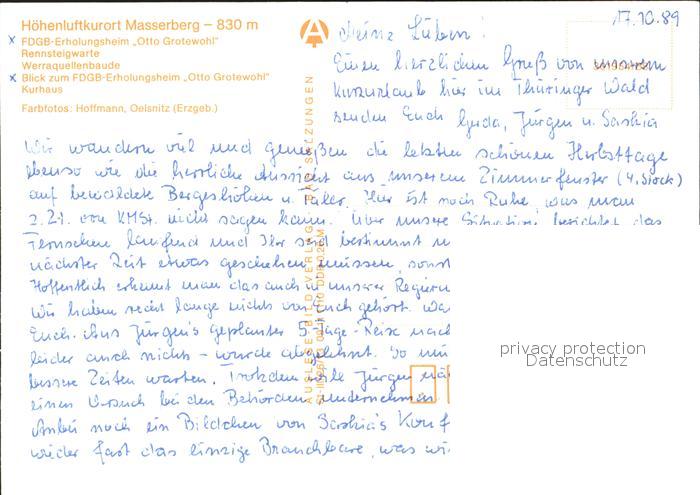 Höhenluftkurort Masserberg – 830 m
x FDGB-Erholungsheim „Otto Grotewohl"
Rennsteigwarte
Werraquellenbaude
x Blick zum FDGB-Erholungsheim „Otto Grotewohl"
Kurhaus
Farbfotos: Hoffmann, Oelsnitz (Erzgeb.)
17.10.89
Meine Lieben!
Einen herzlichen Gruß von unserem
Kurzurlaub hier im Thüringer Wald
senden Euch Gerda, Jürgen u. Saskia
Wir wandern viel und genießen die letzten schönen Herbsttage
ebenso wie die herrliche Aussicht aus unserem Zimmerfenster (4. Stock)
auf bewaldete Bergeshöhen u. Täler. Hier ist noch Ruhe, was man
z. Zt. von KMSt. nicht sagen kann. Über unsere Situation berichtet das
Fernsehen laufend und Ihr seid bestimmt
nächster Zeit etwas geschehen müssen, sonst
Hoffentlich erkennt man das auch in unserer Regieru
Wir haben recht lange nichts von Euch gehört. Wa
Euch. Aus Jürgen's geplanter 5-Tage-Reise nach
leider auch nichts – wurde abgelehnt. So mü
bessere Zeiten warten. Trotzdem will Jürgen
einen Versuch bei den Behörden unternehmen
Anbei noch ein Bildchen von Saskia's Konf
wieder fast das einzige Brauchbare, was wi
AUSLESE-BILD-VERLAG
privacy protection
Datenschutz